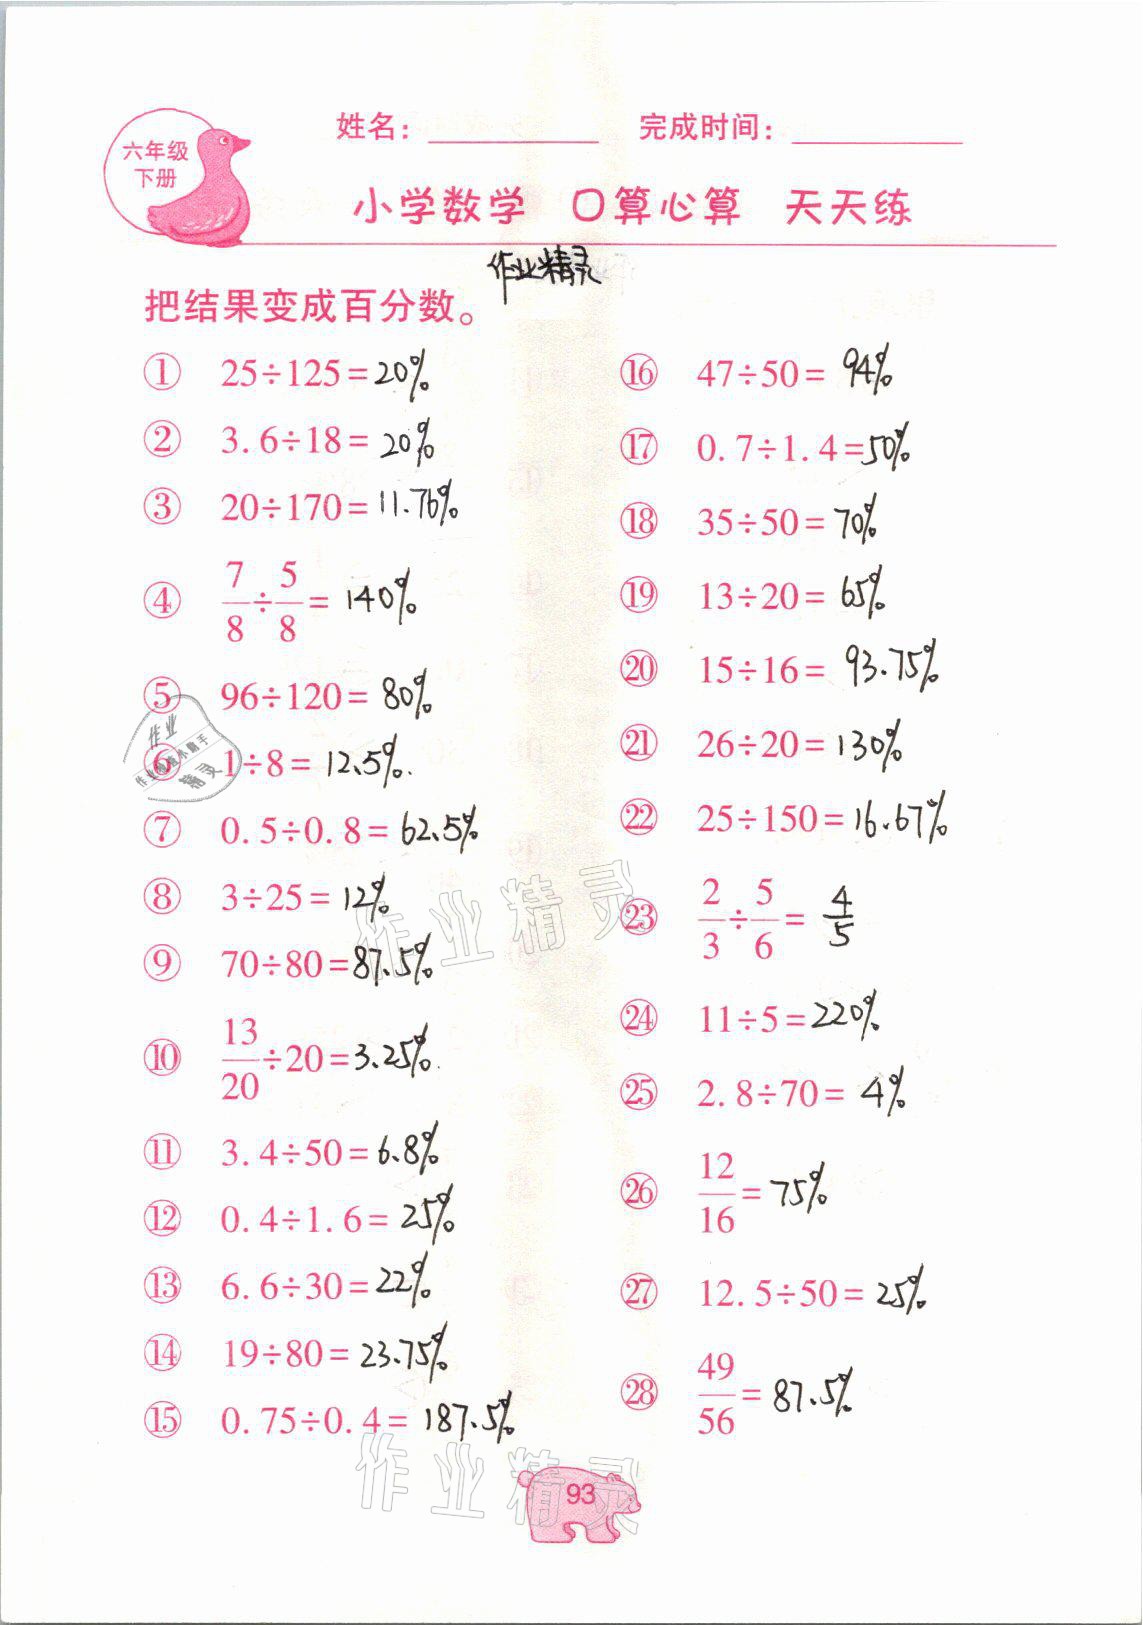 六年级
下册
姓名： 完成时间：
小学数学 口算心算 天天练
作业精灵
把结果变成百分数。
① 25÷125=20%
② 3.6÷18=20%
③ 20÷170=11.76%
④ 7/8÷5/8=140%
⑤ 96÷120=80%
⑥ 1÷8=12.5%.
⑦ 0.5÷0.8=62.5%
⑧ 3÷25=12%
⑨ 70÷80=87.5%
⑩ 13/20÷20=3.25%.
⑪ 3.4÷50=6.8%
⑫ 0.4÷1.6=25%
⑬ 6.6÷30=22%
⑭ 19÷80=23.75%
⑮ 0.75÷0.4=187.5%
⑯ 47÷50=94%
⑰ 0.7÷1.4=50%
⑱ 35÷50=70%
⑲ 13÷20=65%
⑳ 15÷16=93.75%
㉑ 26÷20=130%
㉒ 25÷150=16.67%
㉓ 2/3÷5/6=4/5
㉔ 11÷5=220%
㉕ 2.8÷70=4%
㉖ 12/16=75%
㉗ 12.5÷50=25%
㉘ 49/56=87.5%
作业
精灵
作业精灵
作业精灵
93